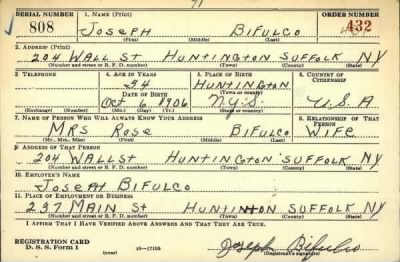 71
SERIAL NUMBER 1. NAME (Print) ORDER NUMBER
808 JOSEPH BIFULCO 432
(First) (Middle) (Last)
2. ADDRESS (Print)
204 WALL ST HUNTINGTON SUFFOLK NY
(Number and street or R. F. D. number) (Town) (County) (State)
3. TELEPHONE 4. AGE IN YEARS 5. PLACE OF BIRTH 6. COUNTRY OF CITIZENSHIP
34 HUNTINGTON
(Town or county)
DATE OF BIRTH
Oct 6 1906 N.Y.S. U.S.A
(Exchange) (Number) (Mo.) (Day) (Yr.) (State or country)
7. NAME OF PERSON WHO WILL ALWAYS KNOW YOUR ADDRESS 8. RELATIONSHIP OF THAT PERSON
MRS ROSE BIFULCO WIFE
(Mr., Mrs., Miss) (First) (Middle) (Last)
9. ADDRESS OF THAT PERSON
204 WALL ST HUNTINGTON SUFFOLK NY
(Number and street or R. F. D. number) (Town) (County) (State)
10. EMPLOYER'S NAME
JOSEPH BIFULCO
11. PLACE OF EMPLOYMENT OR BUSINESS
237 MAIN ST HUNTINTON SUFFOLK NY
(Number and street or R. F. D. number) (Town) (County) (State)
I AFFIRM THAT I HAVE VERIFIED ABOVE ANSWERS AND THAT THEY ARE TRUE.
REGISTRATION CARD
D. S. S. Form 1 (over) 16-17105 Joseph Bifulco
(Registrant's signature)